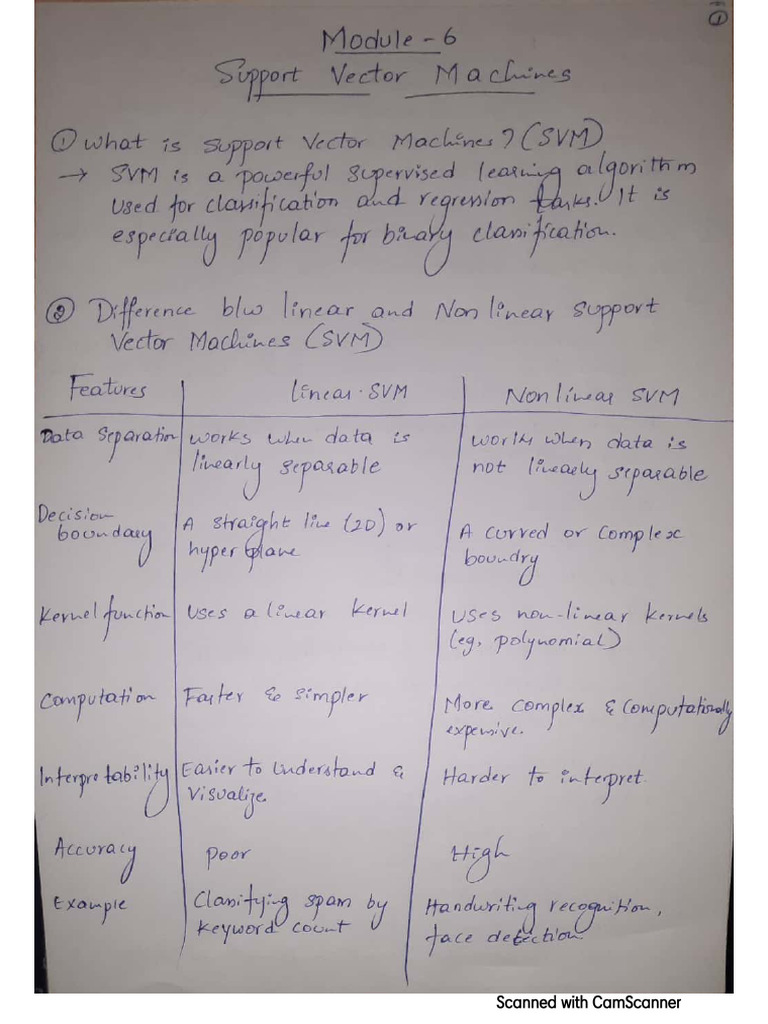 ①
Module - 6
Support Vector Machines
① What is Support Vector Machines? (SVM)
→ SVM is a powerful supervised learning algorithm
used for classification and regression tasks. It is
especially popular for binary classification.
② Difference b/w linear and Non linear Support
Vector Machines (SVM)
Features | Linear SVM | Non linear SVM
Data Separation | Works when data is | Works when data is
linearly separable | not linearly separable
Decision
boundary | A straight line (2D) or | A curved or complex
hyper plane | boundry
Kernel function | Uses a linear kernel | Uses non-linear kernels
(eg, polynomial)
Computation | Faster & simpler | More complex & computationally
expensive.
Interpretability | Easier to understand & | Harder to interpret.
visualize.
Accuracy | Poor | High
Example | Classifying spam by | Handwriting recognition,
keyword count | face detection
Scanned with CamScanner